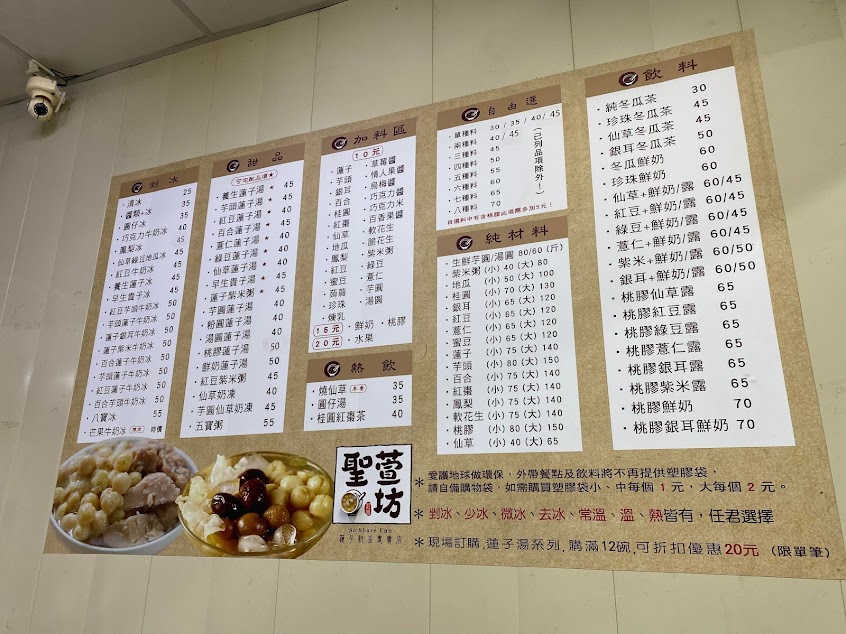 剉冰
・清冰 25
・醬類冰 35
・圓仔冰 35
・巧克力牛奶冰 40
・鳳梨冰 45
・仙草綠豆地瓜冰 45
・紅豆牛奶冰 45
・養生蓮子冰 45
・早生貴子冰 45
・紅豆芋頭牛奶冰 50
・芋頭蓮子牛奶冰 50
・蓮子銀耳牛奶冰 50
・蓮子紫米牛奶冰 50
・百合蓮子牛奶冰 50
・芋頭蓮子牛奶冰 50
・紅豆蓮子牛奶冰 50
・百合芋頭牛奶冰 50
・八寶冰 55
・芒果牛奶冰 時價
甜品
可宅配品項★
・養生蓮子湯★ 45
・芋頭蓮子湯★ 45
・紅豆蓮子湯★ 40
・百合蓮子湯★ 40
・薏仁蓮子湯★ 40
・綠豆蓮子湯★ 40
・仙草蓮子湯★ 40
・早生貴子湯★ 45
・蓮子紫米粥★ 45
・芋圓蓮子湯 40
・粉圓蓮子湯 40
・湯圓蓮子湯 40
・桃膠蓮子湯 50
・鮮奶蓮子湯 50
・紅豆紫米粥 45
・仙草奶凍 40
・芋圓仙草奶凍 45
・五寶粥 55
加料區
10元
・蓮子 ・草莓醬
・芋頭 ・情人果醬
・銀耳 ・烏梅醬
・百合 ・巧克力醬
・桂圓 ・巧克力米
・紅棗 ・百香果醬
・仙草 ・軟花生
・地瓜 ・脆花生
・鳳梨 ・紫米粥
・紅豆 ・綠豆
・蜜豆 ・薏仁
・蒟蒻 ・芋圓
・珍珠 ・湯圓
・煉乳
15元 ・鮮奶 ・桃膠
20元 ・水果
熱飲
・燒仙草 冬季 35
・圓仔湯 35
・桂圓紅棗茶 40
自由選
・單種料 30 / 35 / 40 / 45
・兩種料 40 / 45
・三種料 45
・四種料 50
・五種料 55
・六種料 60
・七種料 65
・八種料 70
(已列品項除外！)
自選料中有含桃膠此項需多加5元！
純材料
・生鮮芋圓/湯圓 80/60 (斤)
・紫米粥 (小) 40 (大) 80
・地瓜 (小) 50 (大) 100
・桂圓 (小) 70 (大) 130
・銀耳 (小) 65 (大) 120
・紅豆 (小) 65 (大) 120
・薏仁 (小) 65 (大) 120
・蜜豆 (小) 65 (大) 120
・蓮子 (小) 75 (大) 140
・芋頭 (小) 80 (大) 150
・百合 (小) 75 (大) 140
・紅棗 (小) 75 (大) 140
・鳳梨 (小) 75 (大) 140
・軟花生 (小) 75 (大) 140
・桃膠 (小) 80 (大) 150
・仙草 (小) 40 (大) 65
飲料
・純冬瓜茶 30
・珍珠冬瓜茶 45
・仙草冬瓜茶 45
・銀耳冬瓜茶 50
・冬瓜鮮奶 60
・珍珠鮮奶 60
・仙草+鮮奶/露 60/45
・紅豆+鮮奶/露 60/45
・綠豆+鮮奶/露 60/45
・薏仁+鮮奶/露 60/45
・紫米+鮮奶/露 60/50
・銀耳+鮮奶/露 60/50
・桃膠仙草露 65
・桃膠紅豆露 65
・桃膠綠豆露 65
・桃膠薏仁露 65
・桃膠銀耳露 65
・桃膠紫米露 65
・桃膠鮮奶 70
・桃膠銀耳鮮奶 70
聖萱坊
So Share Fun
＊愛護地球做環保，外帶餐點及飲料將不再提供塑膠袋，
請自備購物袋，如需購買塑膠袋小、中每個 1 元，大每個 2 元。
＊剉冰、少冰、微冰、去冰、常溫、溫、熱皆有，任君選擇
＊現場訂購,蓮子湯系列,購滿12碗,可折扣優惠20元 (限單筆)